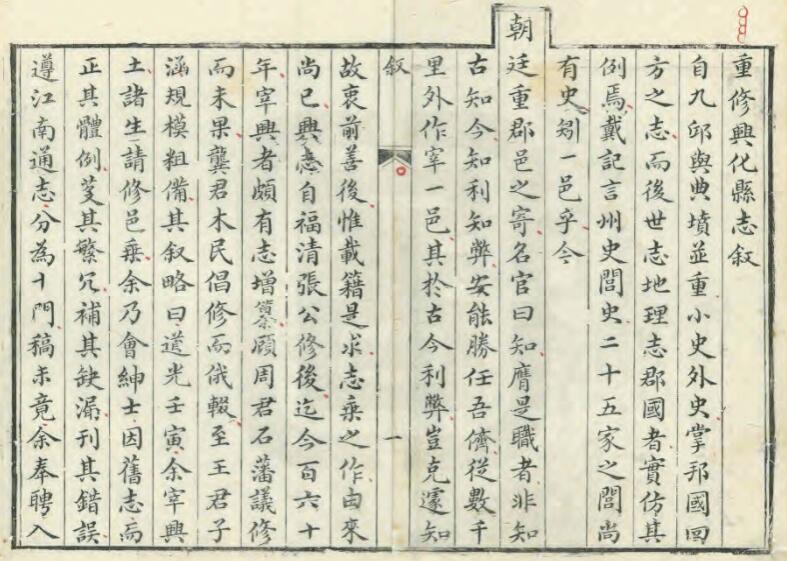 重修興化縣志叙
自九邱與典墳並重小史外史掌邦國四
方之志而後世志地理志郡國者實仿其
例焉戴記言州史閭史二十五家之閭尚
有史矧一邑乎今
朝廷重郡邑之寄名官曰知膺是職者非知
古知今知利知弊安能勝任吾儕從數千
里外作宰一邑其於古今利弊豈克遽知
叙 一
故衷前善後惟載籍是求志乘之作由來
尚已興志自福清張公修後迄今百六十
年宰興者頗有志增纂顧周君石藩議修
而未果龔君木民倡修而俄輟至王君子
涵規模粗備其叙略曰道光壬寅余宰興
土諸生請修邑乘余乃會紳士因舊志而
正其體例芟其繁冗補其缺漏刊其錯誤
遵江南通志分為十門稿未竟余奉聘入